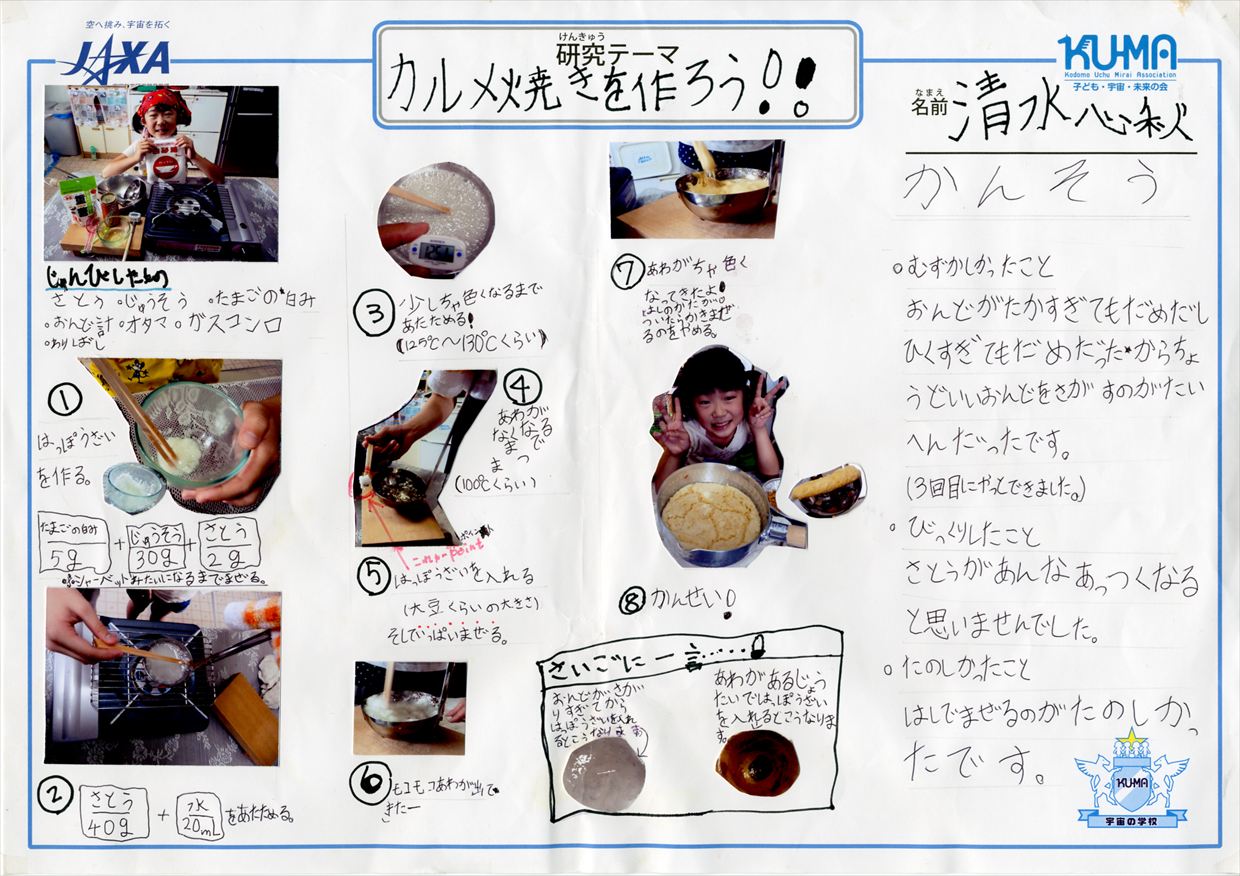 空へ挑み、宇宙を拓く
JAXA
けんきゅう
研究テーマ
カルメ焼きを作ろう!!
KU-MA
Kodomo Uchu Mirai Association
子ども・宇宙・未来の会
なまえ
名前 清水心秋
じゅんびしたもの
さとう 。じゅうそう 。たまごの白み
。おんど計 。オタマ 。ガスコンロ
。わりばし
①
はっぽうざい
を作る。
たまごの白み 5g + じゅうそう 30g + さとう 2g
※シャーベットみたいになるまでまぜる。
②
さとう 40g + 水 20mL をあたためる。
③
少しちゃ色くなるまで
あたためる!
(125℃〜130℃くらい)
④
あわが
なくなる
まで
まつ
(100℃くらい)
ポイント
これがpoint
⑤
はっぽうざいを入れる
(大豆くらいの大きさ)
そしていっぱいまぜる。
⑥
モコモコあわが出て
きたー
⑦
あわがちゃ色く
なってきたよ!
はしのかたが
ついたらかきまぜ
るのをやめる。
⑧ かんせい!
さいごに一言……!
おんどがさが
りすぎてから
はっぽうざいを入れ
るとこうなります
あわがあるじょう
たいではっぽうざい
を入れるとこうなりま
す。
かんそう
。むずかしかったこと
おんどがたかすぎてもだめだし
ひくすぎてもだめだった*からちょ
うどいいおんどをさがすのがたい
へんだったです。
(3回目にやっとできました。)
。びっくりしたこと
さとうがあんなあっつくなる
と思いませんでした。
。たのしかったこと
はしでまぜるのがたのしかっ
たです。
KU-MA
宇宙の学校